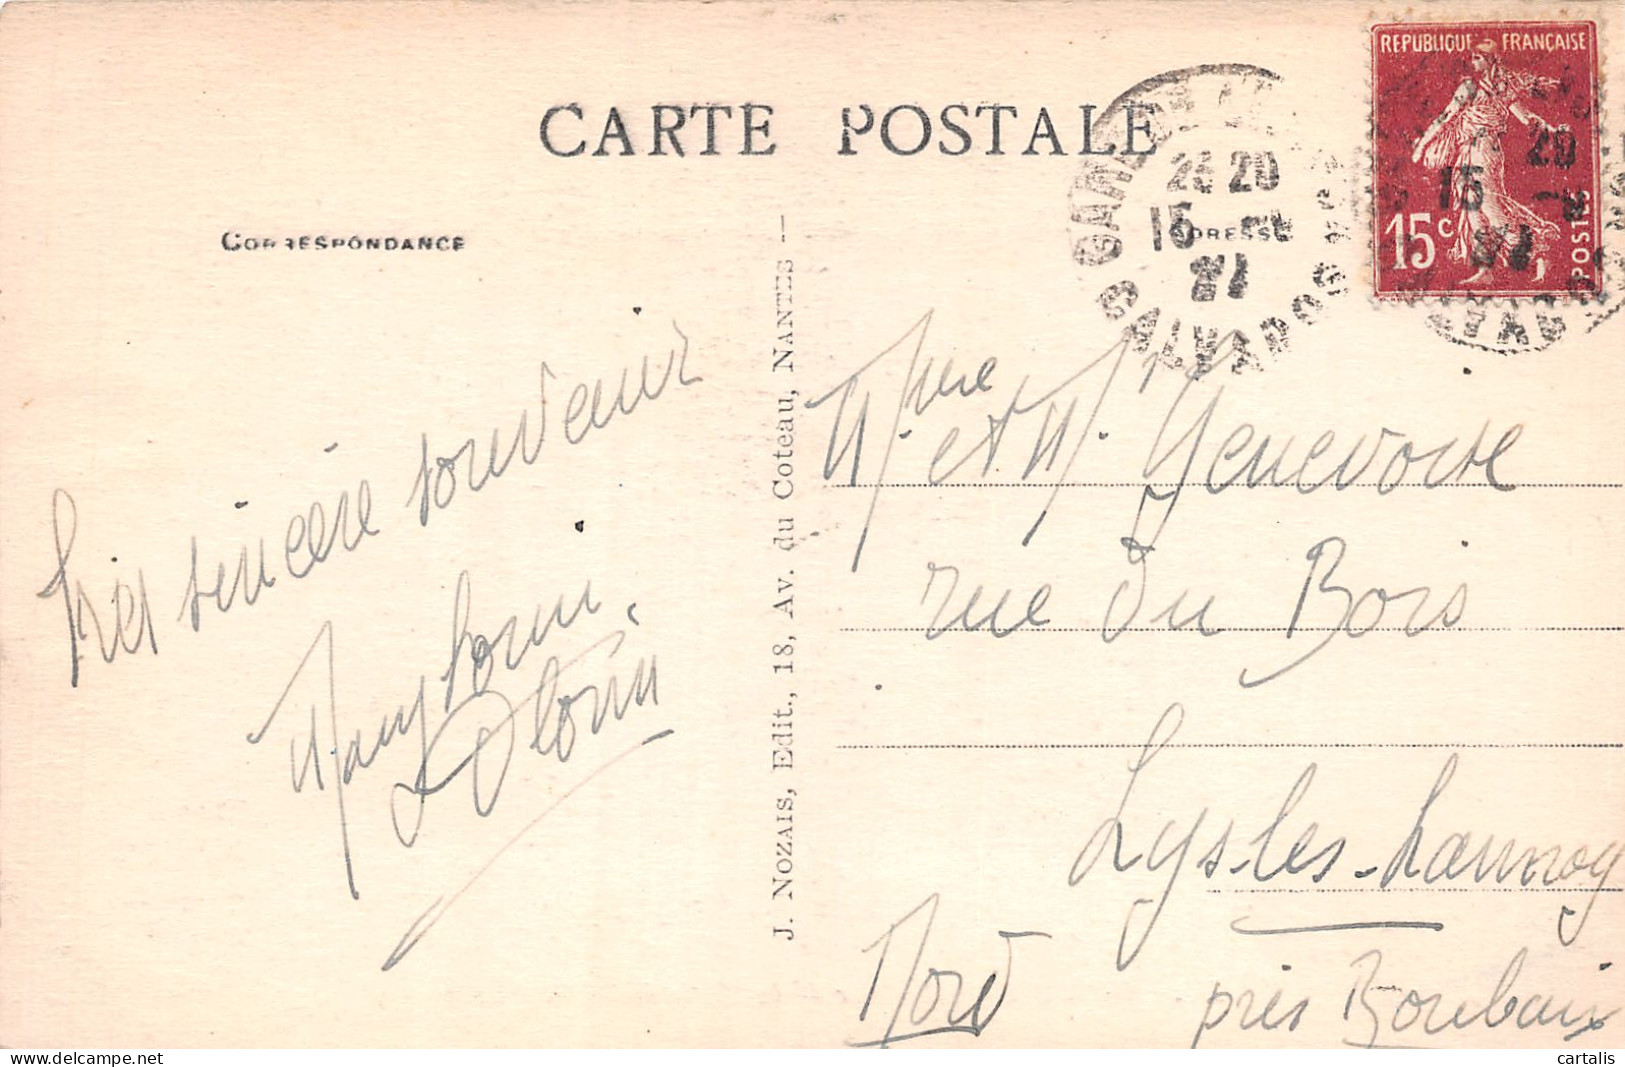 CARTE POSTALE
CORRESPONDANCE
ADRESSE
REPUBLIQUE FRANÇAISE
15c
POSTES
CALVADOS
15
20
15
J. NOZAIS, Edit., 18, Av. du Coteau, NANTES —
sincère souvenir
Mme et M. Genevoise
rue du Bois
Lys-les-Lannoy
Nord
près Roubaix
cartalis